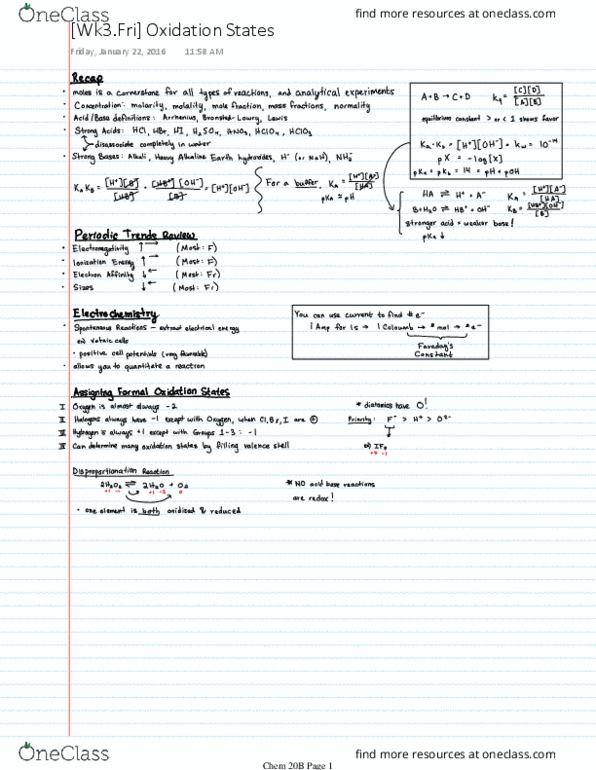 OneClass
find more resources at oneclass.com
[Wk3.Fri] Oxidation States
Friday, January 22, 2016 11:58 AM
Recap
• moles is a cornerstone for all types of reactions, and analytical experiments
• Concentration: molarity, molality, mole fraction, mass fractions, normality
• Acid/Base definitions: Arrhenius, Bronsted-Lowry, Lewis
• Strong Acids: HCl, HBr, HI, H₂SO₄, HNO₃, HClO₄, HClO₃
disassociate completely in water
• Strong Bases: Alkali, Heavy Alkaline Earth hydroxides, H⁻ (or NaH), NH₂⁻
KₐK_B = [H⁺][B]/[HB⁺] · [HB⁺][OH⁻]/[B] = [H⁺][OH⁻]
For a buffer, Kₐ = [H⁺][A⁻]/[HA]
pKₐ ≈ pH
A+B → C+D K_q = [C][D]/[A][B]
equilibrium constant > or < 1 shows favor
Kₐ·K_b = [H⁺][OH⁻] = K_w = 10⁻¹⁴
pX = -log[x]
pKₐ + pK_b = 14 = pH + pOH
HA ⇌ H⁺ + A⁻ Kₐ = [H⁺][A⁻]/[HA]
B+H₂O ⇌ HB⁺ + OH⁻ K_B = [HB⁺][OH⁻]/[B]
Stronger acid = weaker base!
pKₐ ↓
Periodic Trends Review
• Electronegativity ↑→ (Most: F)
• Ionization Energy ↑→ (Most: F)
• Electron Affinity ↓← (Most: Fr)
• Sizes ↓← (Most: Fr)
Electrochemistry
• Spontaneous Reactions – extract electrical energy
ex) voltaic cells
• positive cell potentials (very favorable)
• allows you to quantitate a reaction
You can use current to find # e⁻
1 Amp for 1s → 1 Coloumb → # mol → # e⁻
Faraday's
Constant
Assigning Formal Oxidation States
I Oxygen is almost always -2
II Halogens always have -1 except with Oxygen, when Cl, Br, I are ⊕
III Hydrogen is always +1 except with Groups 1-3 : -1
IV Can determine many oxidation states by filling valence shell
* diatomics have 0!
Priority: F⁻ > H⁺ > O²⁻
Disproportionation Reaction
2H₂O₂ ⇌ 2H₂O + O₂
+1 -1 +1 -2 0
• one element is both oxidized & reduced
* NO acid base reactions
are redox!
OneClass
find more resources at oneclass.com
Chem 20B Page 1